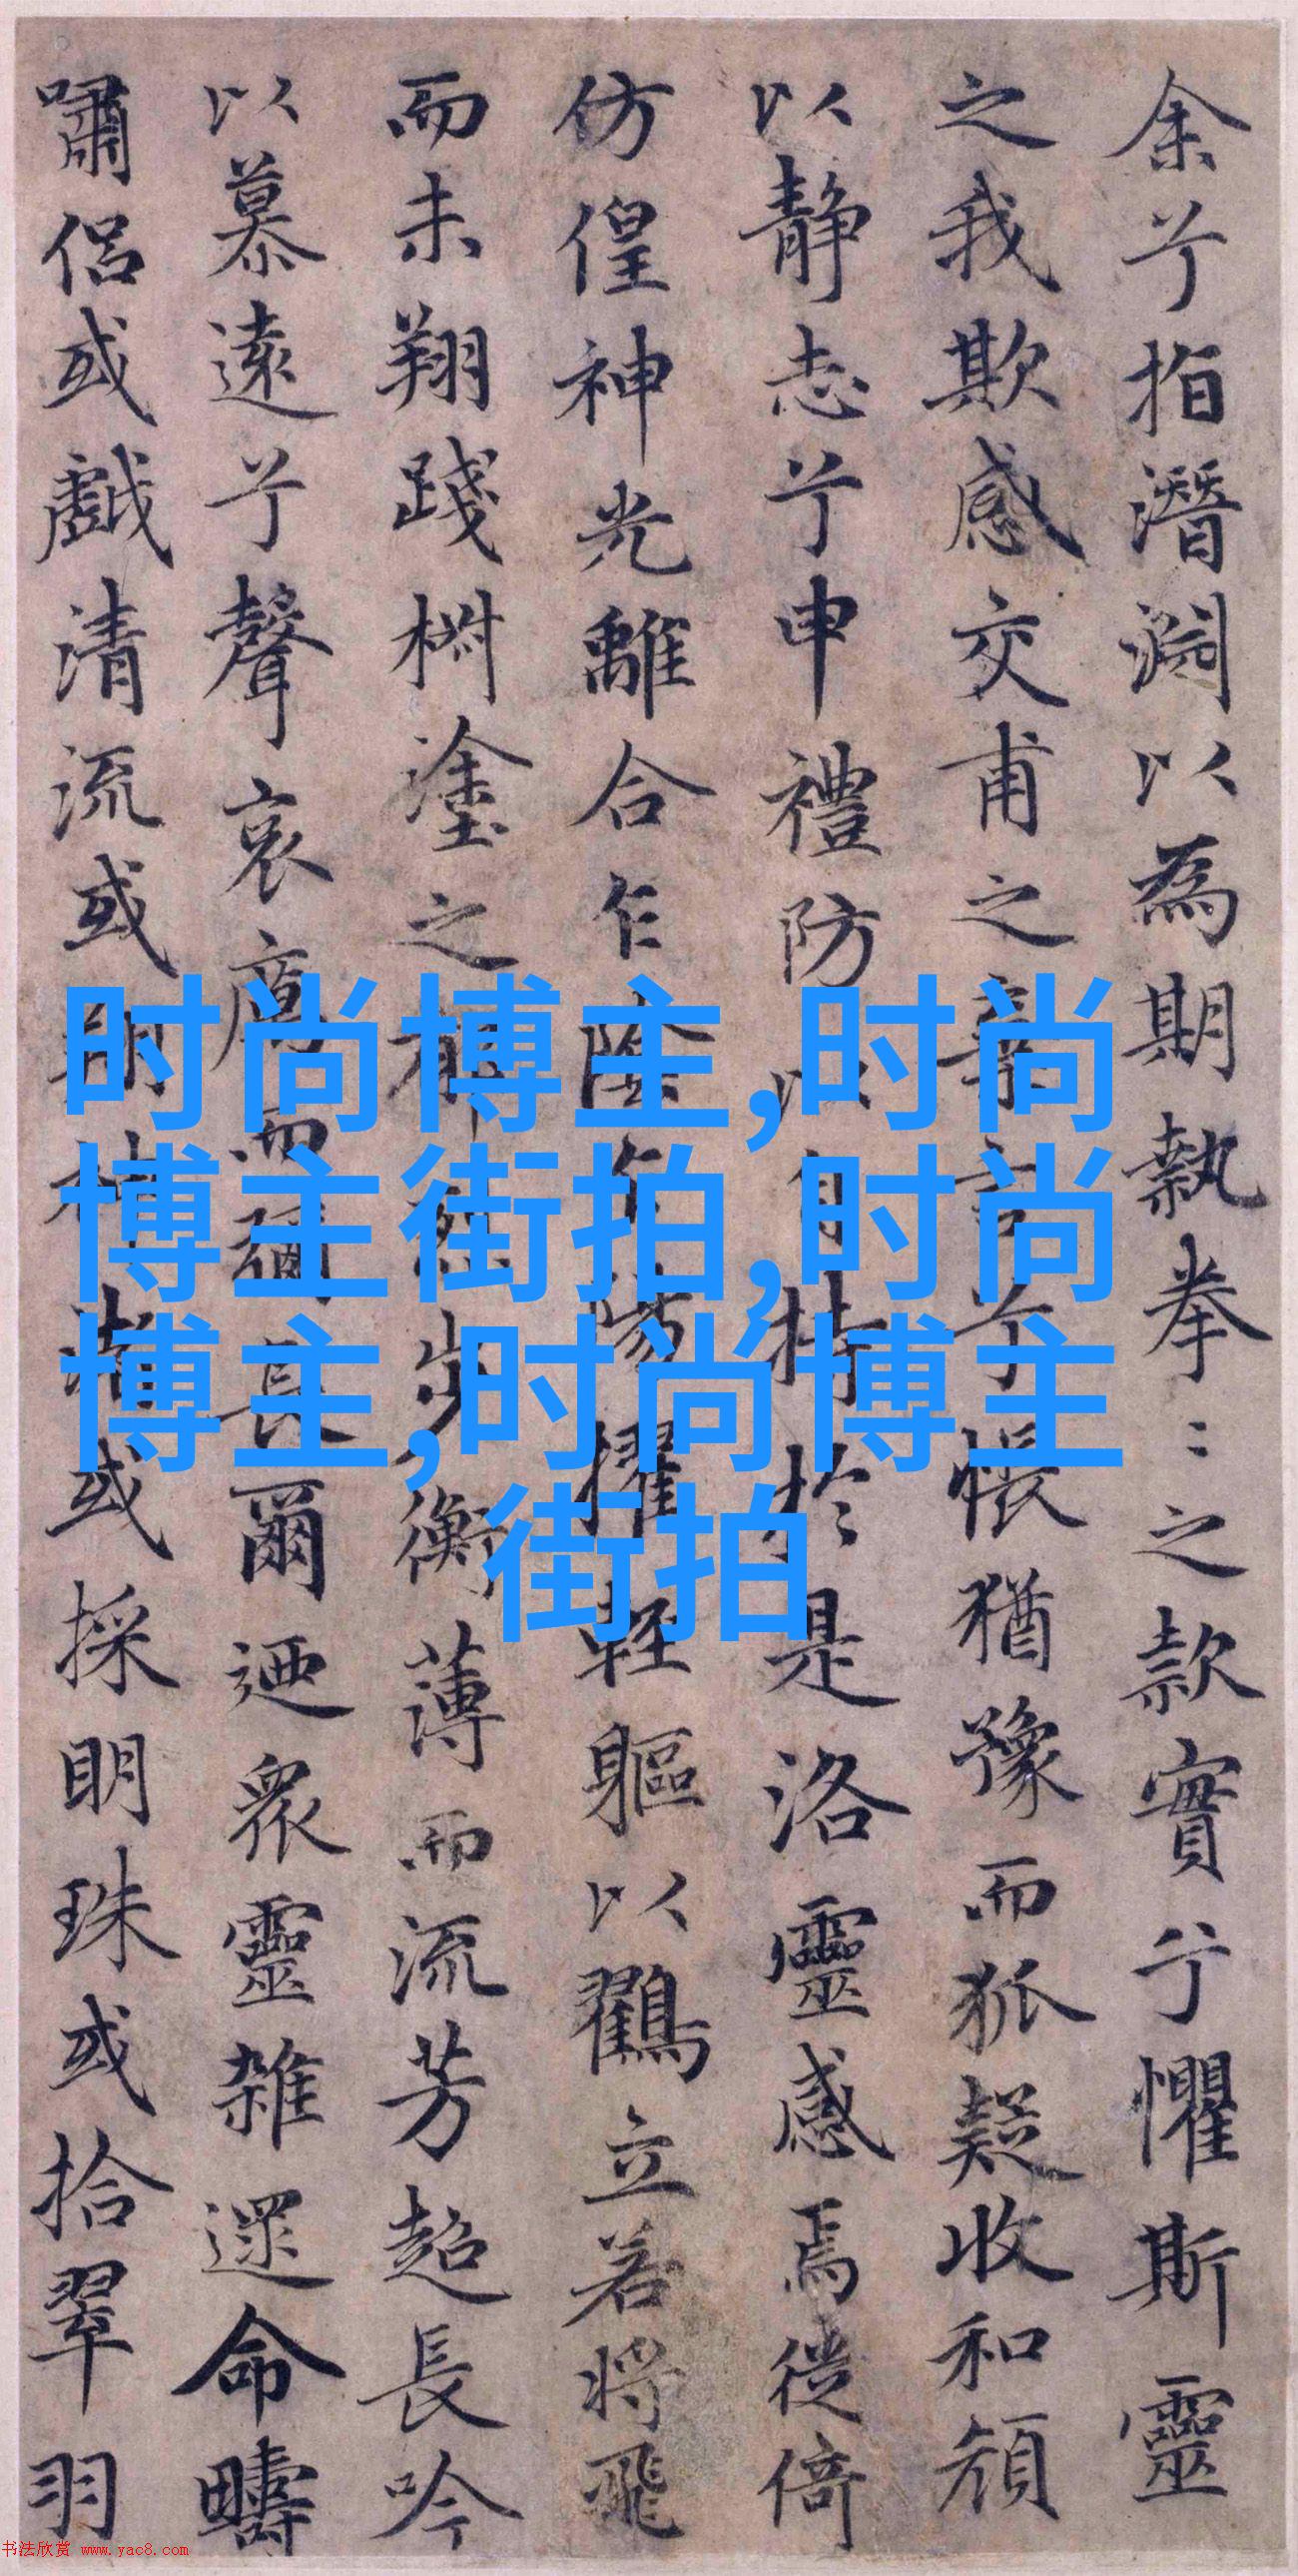 余兮指潛淵以為期執拳〻之款實兮懼斯靈
之我欺感交甫之棄言兮悵猶豫而狐疑收和顏
以靜志兮申禮防以自持於是洛靈感焉徙倚
仿偟神光離合乍陰乍陽擢輕軀以鸖立若將飛
而未翔踐椒塗之郁烈步衡薄而流芳超長吟
以慕遠兮聲哀厲而彌長爾迺眾靈雜遝命疇
嘯侶或戲清流或翔神渚或採明珠或拾翠羽
时尚博主,时尚
博主街拍,时尚
博主,时尚博主
街拍
书法欣赏 www.yac8.com